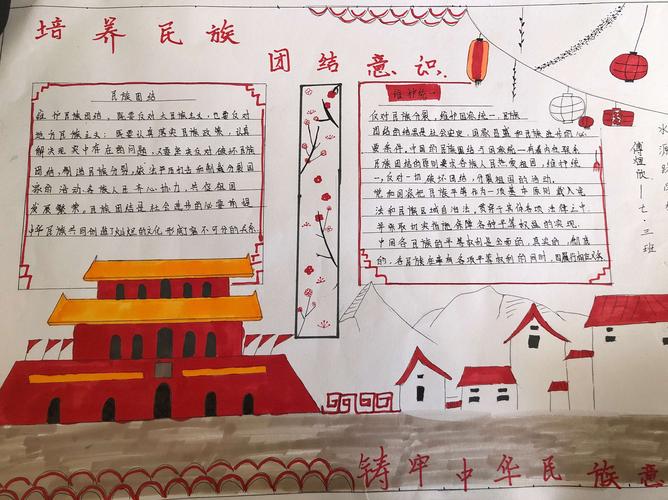 培养民族
团结意识
民族团结
维护民族团结，既要反对大民族主义，也要反对
地方民族主义；既要认真落实民族政策，认真
解决现实中存在的问题，又要坚决反对破坏民族
团结，制造民族分裂，依法平等打击和制裁分裂国
家的活动。各族人民齐心协力，共促祖国
发展繁荣。民族团结是社会进步的必要前提
中华民族共同创造了灿烂的文化形成了密不可分的关系
维护统一
反对民族分裂，维护国家统一，民族
团结的结果是社会安定，国家昌盛和民族进步的必
要条件，中国的民族团结与国家统一有着内在联系
民族团结的原则要求各族人民热爱祖国，维护统
一，反对一切破坏团结，分裂祖国的活动。
党和国家把民族平等作为一项基本原则载入宪
法和民族区域自治法，贯穿于实体各项法律之中
并采取切实措施保障各种平等权益的实现。
中国各民族的平等权利是全面的，真实的，制度
的，各民族在享有各项平等权利的同时，因履行相应义务
水源
傅煊欣 七·三班
铸牢中华民族意